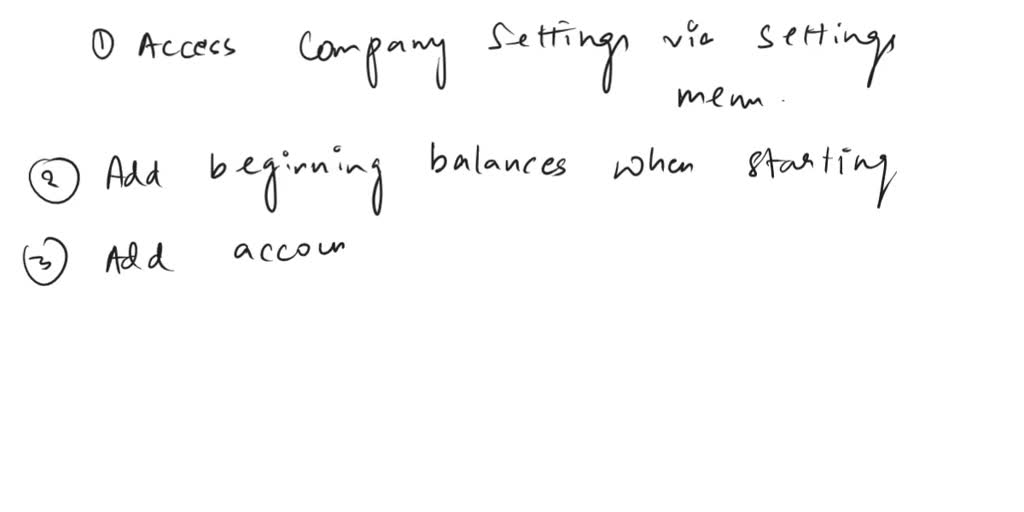 ① Access Company Settings via settings
menu.
② Add beginning balances when starting
③ Add accoun